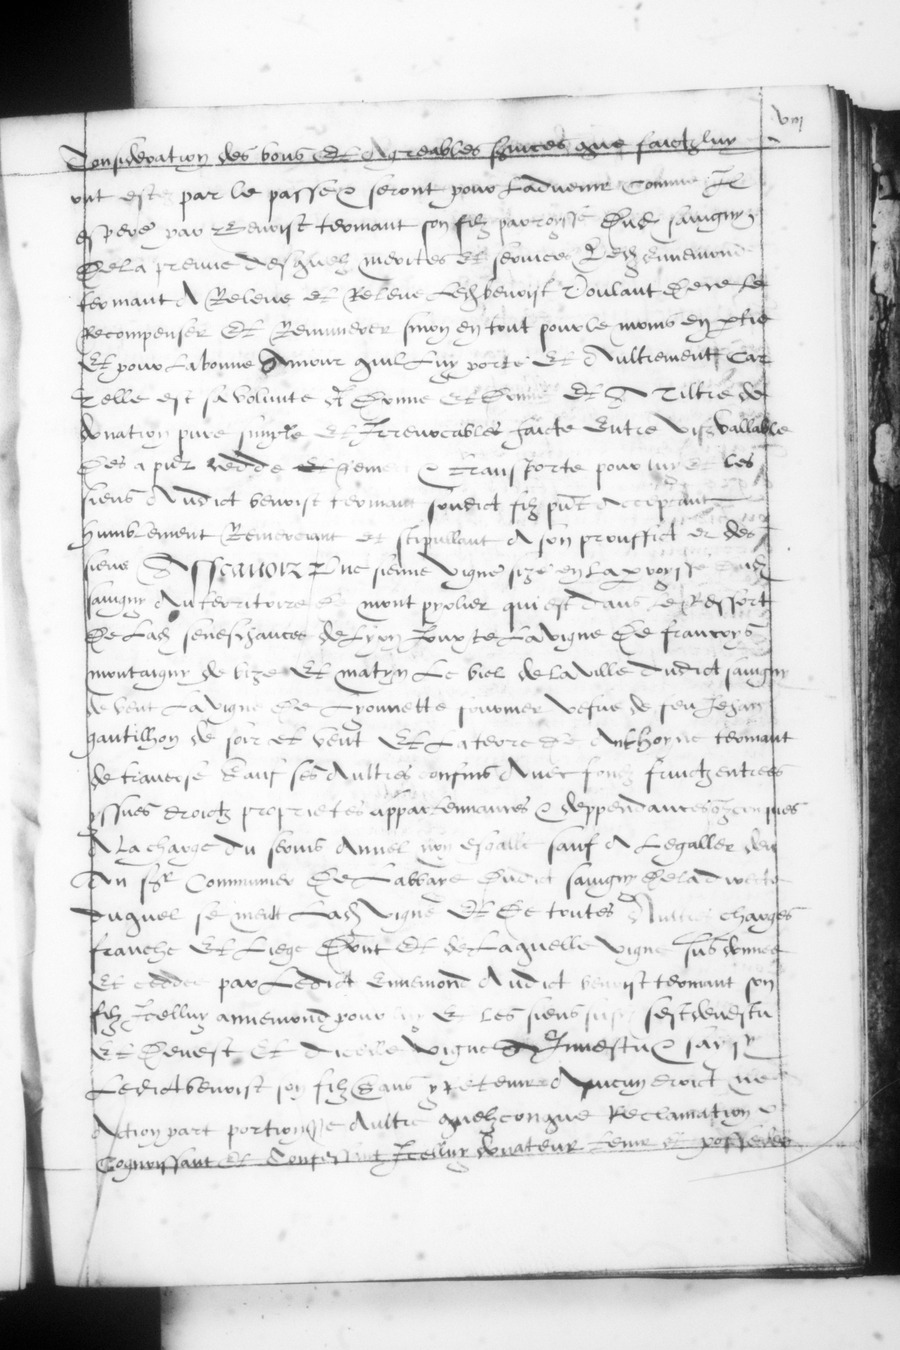 viij
Consideration des bons Et Agreables services que faictz luy
ont este par le passe & seront pour Ladvenir Comme Il
espere par Benoist termant son filz parroysse dud savigny
De La preuve desquelz merites et services Led Ennemond
termant A Releve et Releve Led benoist Voulant de ce le
Recompenser Et Remunerer sinon en tout pour le moins en ptie
Et pour La bonne Amour quil Luy porte Et Aultrement Car
Telle est sa volunte Donne Et Et A Tiltre de
donation pure simple Et Irrevocables faicte Entre vifz vallable
Des a pnt cedde Et & transporte pour luy et les
siens Audict benoist termant sondict filz pnt Acceptant
humblement Remerciant et stipullant A son prouffict et des
siens Asscavoir Une sienne vigne size en La parroysse dud
savigny Au territoire de mont qui est dans Le Ressort
De Lad seneschaucee de Lyon Jouxte La vigne De francoys
montaigny de bize Et matyn Le biel de La ville dudict savigny
de vent La vigne De Lyonnette vefve de feu Jehan
gautilhon de soir et vent Et La terre de Anthoyne termant
de traverse sauf ses Aultres confins Avec fondz fruictz entrees
yssues droictz proprietes appartennances & deppendances
A La charge du servis Annuel non esgalle sauf A Legaller deu
Au sgr Communier De Labbaye Dudict savigny De la directe
duquel se meult Lad vigne Et De toutes Aultres charges
franche Et Liege Dont Et de Laquelle vigne sus donnee
Et ceddee par Ledict Ennemond Audict benoist termant son
filz Icelluy annemond pour luy Et Les siens sest devestu
Et Devest Et dicelle vigne Investu & saysy
Ledict benoist son filz sans y retenir Aucun droict
Action part portion Aultre quelzconque Reclamation &
Cognoissant Et Confessant Icelluy donateur tenir et posseder